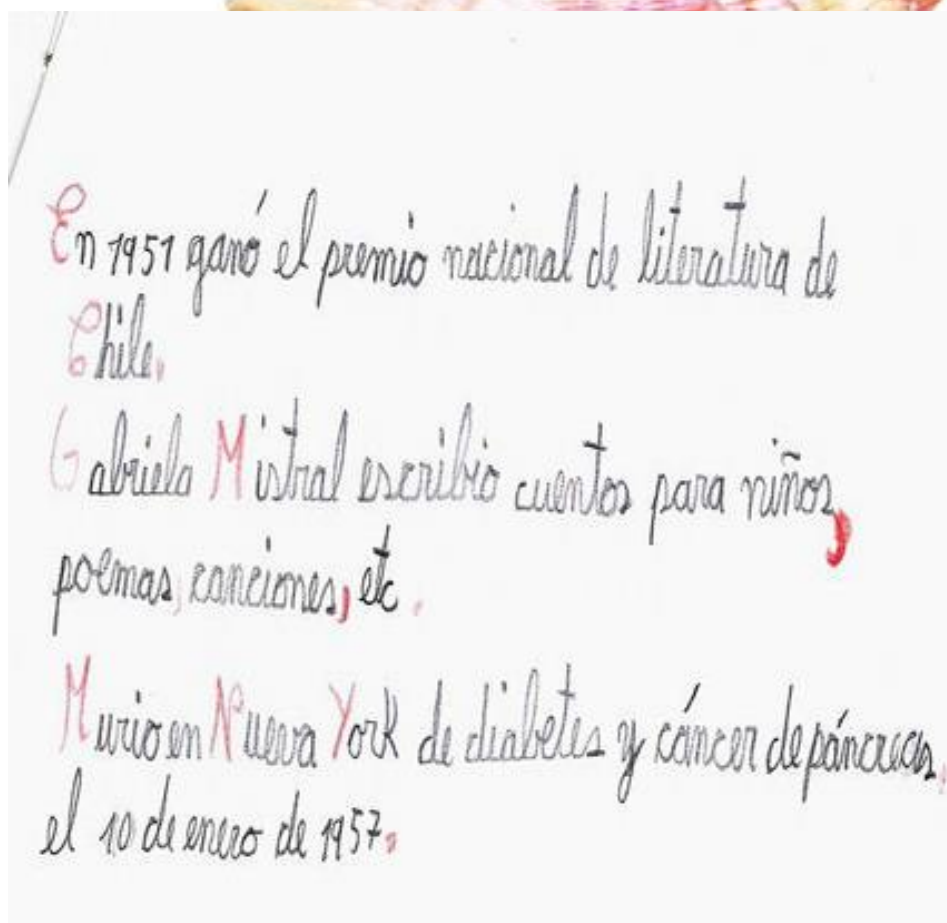 En 1951 ganó el premio nacional de literatura de
Chile.
Gabriela Mistral escribió cuentos para niños,
poemas, canciones, etc.
Murio en Nueva York de diabetes y cáncer de páncreas,
el 10 de enero de 1957.